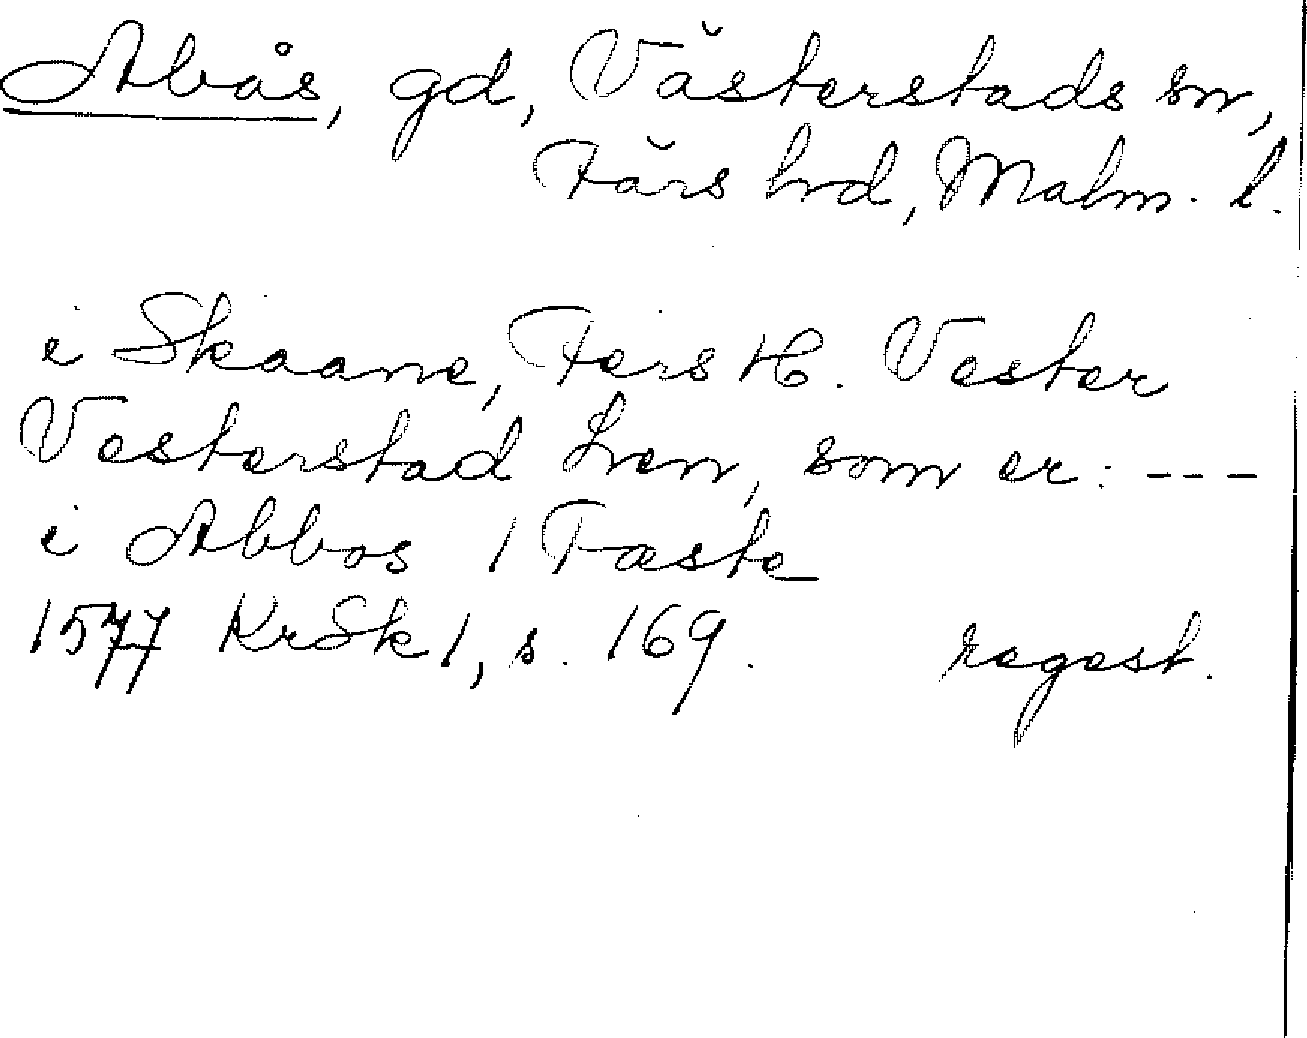 Abås, gd, Västerstads sn,
Färs hd, Malm. l.
i Skaane, Fers H. Vester
Vesterstad Len, som er: ---
i Abbos 1 Fæste
1577 KrSk 1, s. 169. regest.